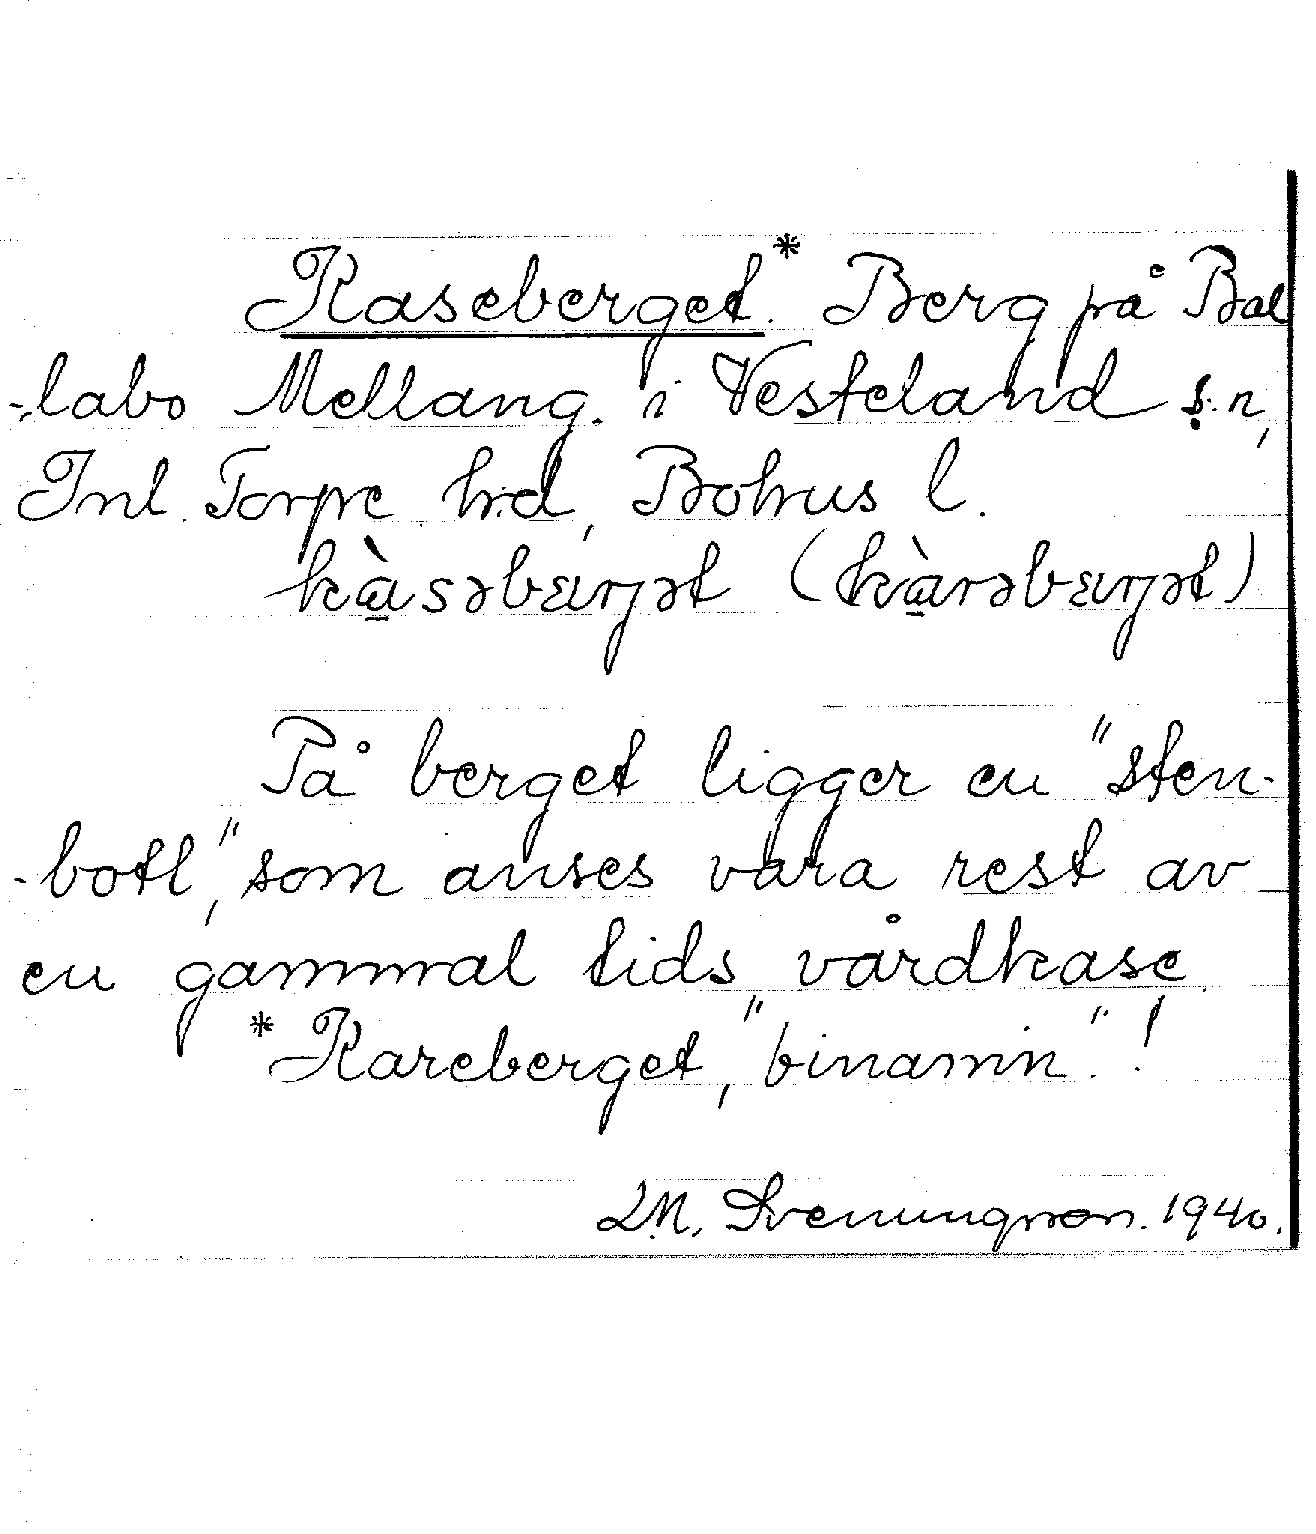 Kaseberget.* Berg på Bal
-labo Mellang. i Vesteland s:n,
Inl. Torpe h:d, Bohus l.
kàsəbærjət (kàrəbærjət)
På berget ligger en "sten-
-botl," som anses vara rest av
en gammal tids vårdkase.
*Kareberget, "binamn".!
L.M. Svenungsson. 1940.